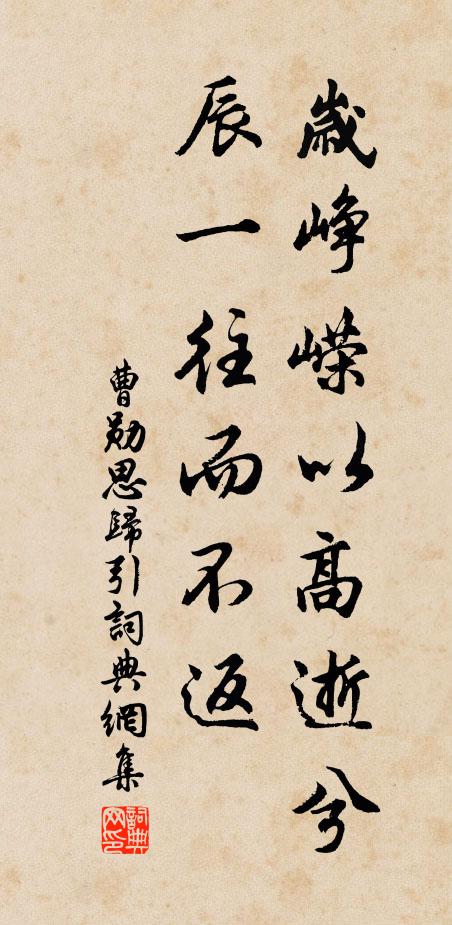 歲崢嶸以高逝兮
辰一往而不返
曹勛思歸引詞典網集
詞典网印